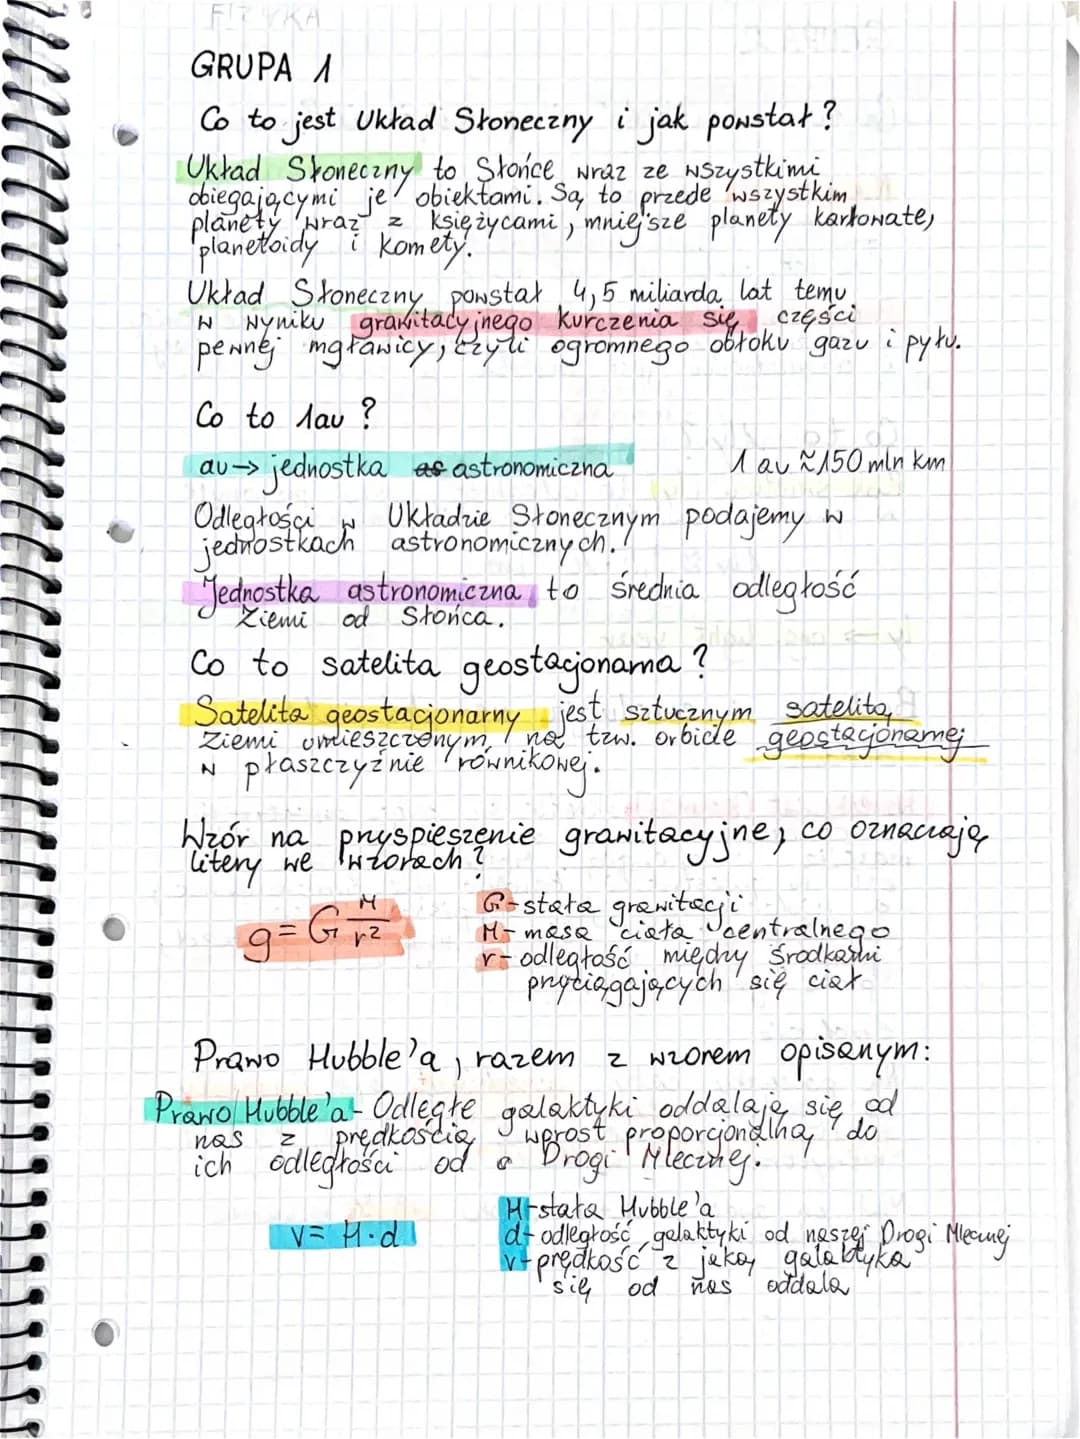 FIZYKA
GRUPA 1
Co to jest Układ Słoneczny i jak powstał?
Układ Słoneczny to Słońce wraz ze wszystkimi
obiegającymi je obiektami. Są to przede wszystkim
planety wraz z księżycami, mniejsze planety karłowate,
planetoidy i komety.
Układ Słoneczny powstał 4,5 miliarda lat temu
w wyniku grawitacyjnego kurczenia się części
pewnej mgławicy, czyli ogromnego obłoku gazu i pyłu.
Co to 1au?
au → jednostka as astronomiczna 1 au ≈ 150 mln km
Odległości w Układzie Słonecznym podajemy w
jednostkach astronomicznych.
Jednostka astronomiczna to średnia odległość
Ziemi od Słońca.
Co to satelita geostacjonarna?
Satelita geostacjonarny jest sztucznym satelitą
Ziemi umieszczonym na tzw. orbicie geostacjonarnej
w płaszczyźnie równikowej.
Wzór na pryspieszenie grawitacyjne, co oznaczają
litery we wzorach?
g = G M/r²
G - stała grawitacji
M - masa ciała centralnego
r - odległość między środkami
pryciągających się ciał
Prawo Hubble'a, razem z wzorem opisanym:
Prawo Hubble'a - Odległe galaktyki oddalają się od
nas z prędkością wprost proporcjonalną do
ich odległości od Drogi Mlecznej.
v = H·d
H - stała Hubble'a
d - odległość galaktyki od naszej Drogi Mlecznej
v - prędkość z jaką galaktyka
się od nas oddala